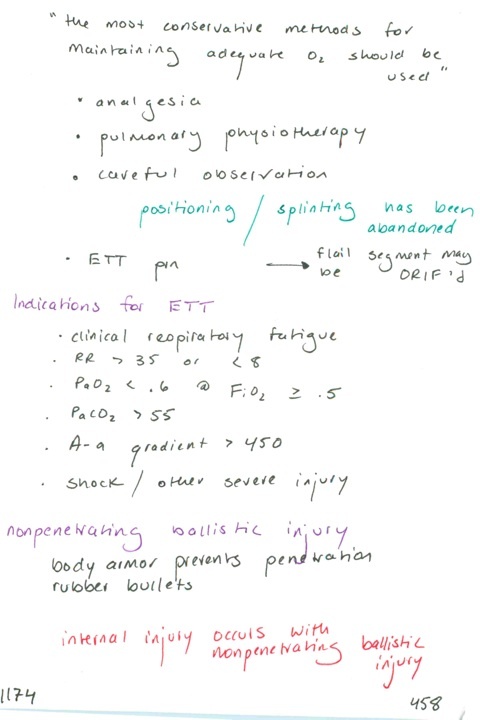 "the most conservative methods for
maintaining adequate O2 should be
used"
• analgesia
• pulmonary physiotherapy
• careful observation
positioning / splinting has been
abandoned
• ETT prn → flail segment may
be ORIF'd
Indications for ETT
• clinical respiratory fatigue
• RR > 35 or < 8
• PaO2 < .6 @ FiO2 ≥ .5
• PaCO2 > 55
• A-a gradient > 450
• shock / other severe injury
nonpenetrating ballistic injury
body armor prevents penetration
rubber bullets
internal injury occurs with
nonpenetrating ballistic
injury
1174 458